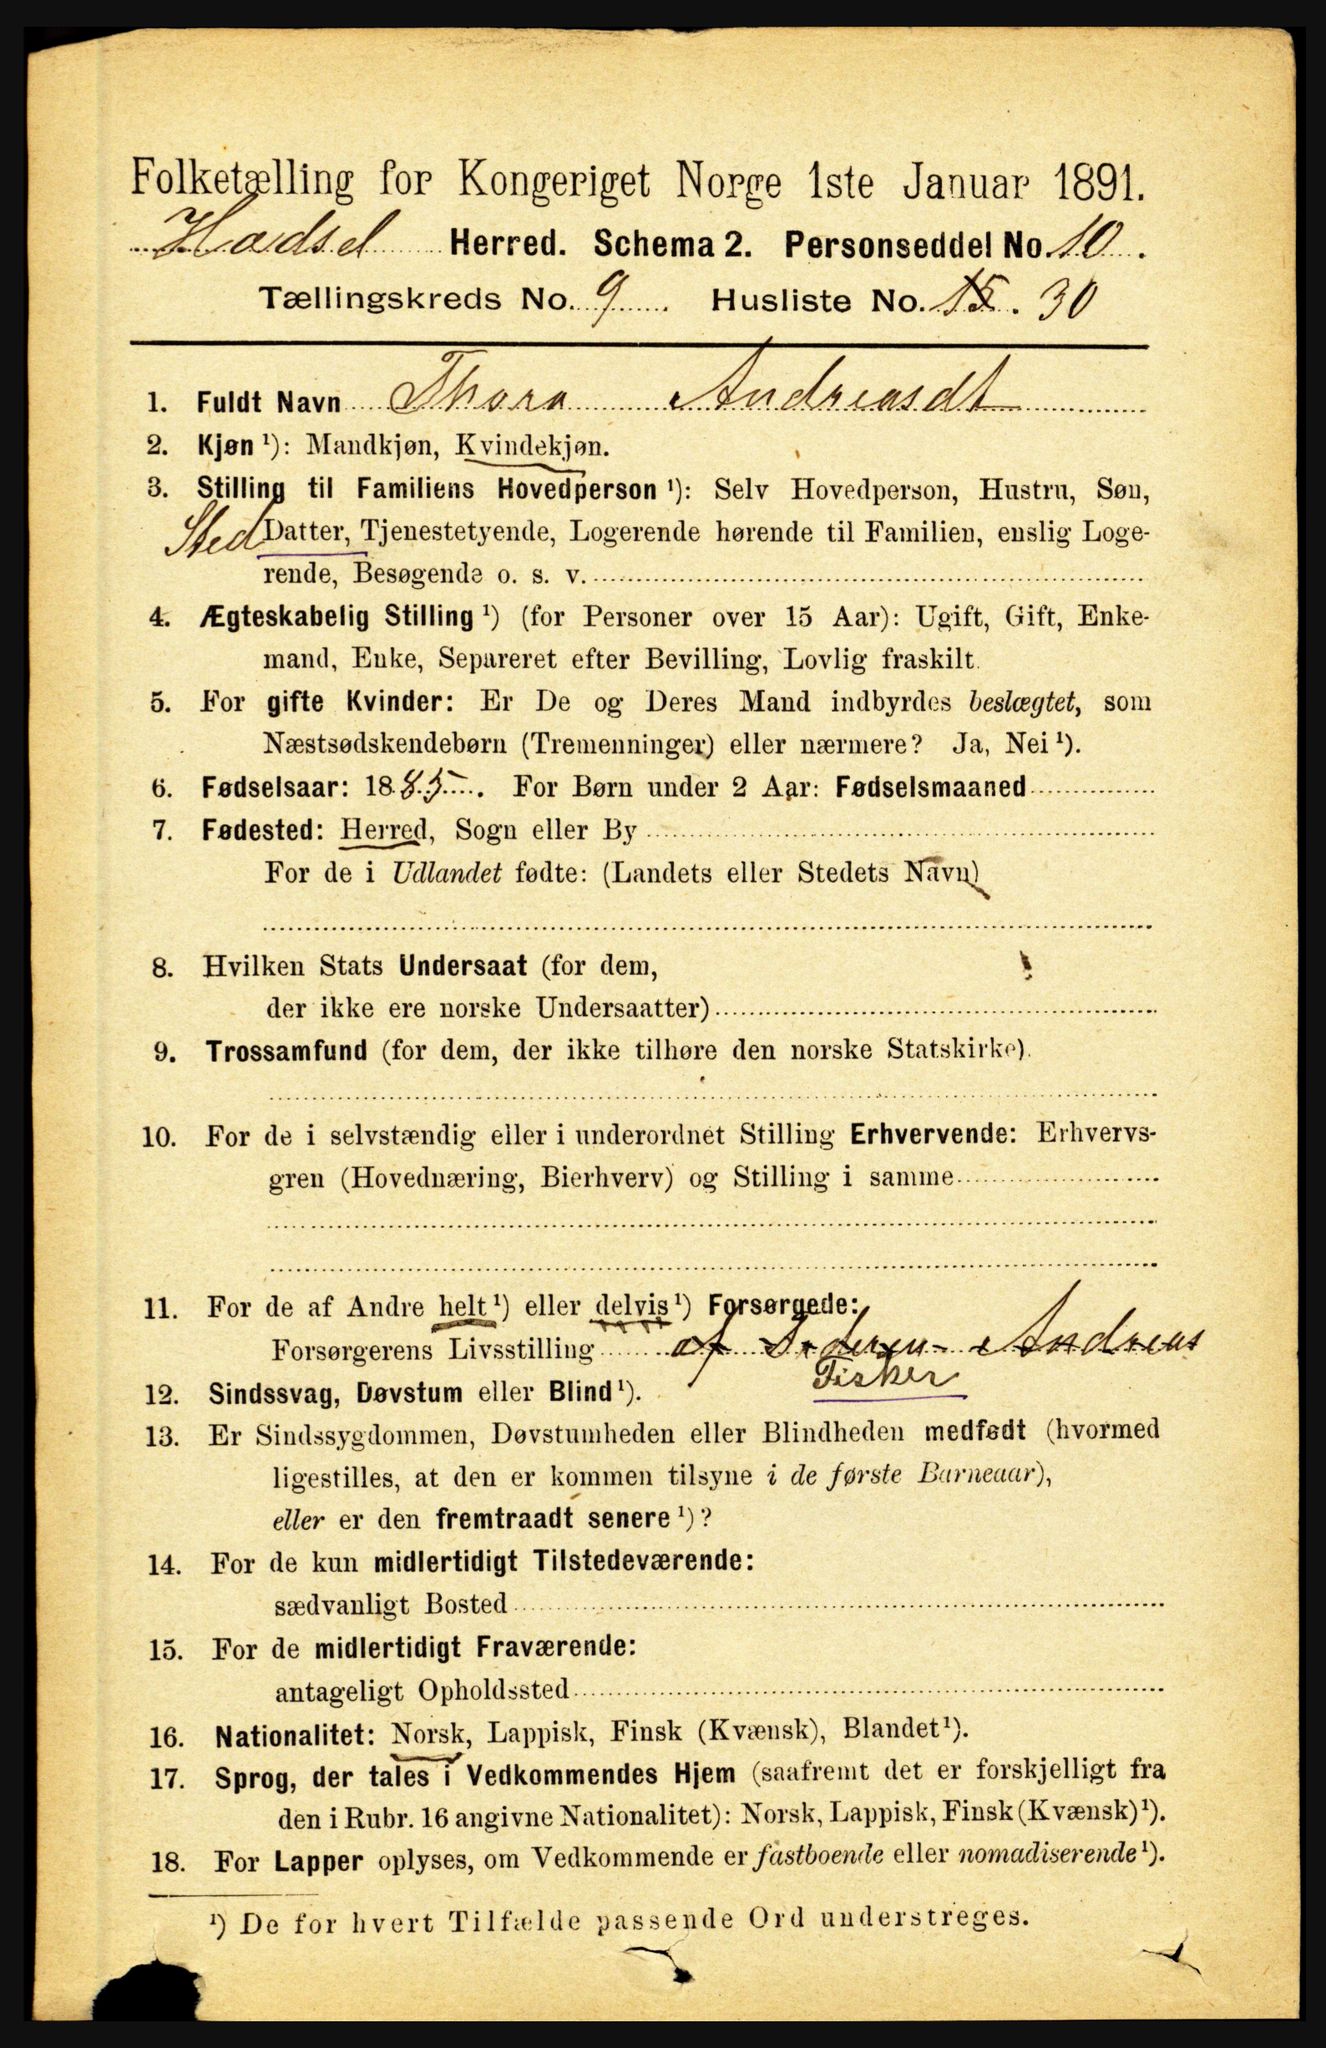 Folketælling for Kongeriget Norge 1ste Januar 1891.
Hadsel Herred. Schema 2. Personseddel No. 10.
Tællingskreds No. 9. Husliste No. 15. 30
1. Fuldt Navn Thora Andreasdt
2. Kjøn ¹): Mandkjøn, Kvindekjøn.
3. Stilling til Familiens Hovedperson ¹): Selv Hovedperson, Hustru, Søn,
Sted Datter, Tjenestetyende, Logerende hørende til Familien, enslig Loge-
rende, Besøgende o. s. v.
4. Ægteskabelig Stilling ¹) (for Personer over 15 Aar): Ugift, Gift, Enke-
mand, Enke, Separeret efter Bevilling, Lovlig fraskilt.
5. For gifte Kvinder: Er De og Deres Mand indbyrdes beslægtet, som
Næstsødskendebørn (Tremenninger) eller nærmere? Ja, Nei ¹).
6. Fødselsaar: 1885. For Børn under 2 Aar: Fødselsmaaned
7. Fødested: Herred, Sogn eller By
For de i Udlandet fødte: (Landets eller Stedets Navn)
8. Hvilken Stats Undersaat (for dem,
der ikke ere norske Undersaatter)
9. Trossamfund (for dem, der ikke tilhøre den norske Statskirke).
10. For de i selvstændig eller i underordnet Stilling Erhvervende: Erhvervs-
gren (Hovednæring, Bierhverv) og Stilling i samme
11. For de af Andre helt ¹) eller delvis ¹) Forsørgede:
Forsørgerens Livsstilling af Andreas
Fisker
12. Sindssvag, Døvstum eller Blind ¹).
13. Er Sindssygdommen, Døvstumheden eller Blindheden medfødt (hvormed
ligestilles, at den er kommen tilsyne i de første Barneaar),
eller er den fremtraadt senere ¹)?
14. For de kun midlertidigt Tilstedeværende:
sædvanligt Bosted
15. For de midlertidigt Fraværende:
antageligt Opholdssted
16. Nationalitet: Norsk, Lappisk, Finsk (Kvænsk), Blandet ¹).
17. Sprog, der tales i Vedkommendes Hjem (saafremt det er forskjelligt fra
den i Rubr. 16 angivne Nationalitet): Norsk, Lappisk, Finsk (Kvænsk) ¹).
18. For Lapper oplyses, om Vedkommende er fastboende eller nomadiserende ¹).
¹) De for hvert Tilfælde passende Ord understreges.